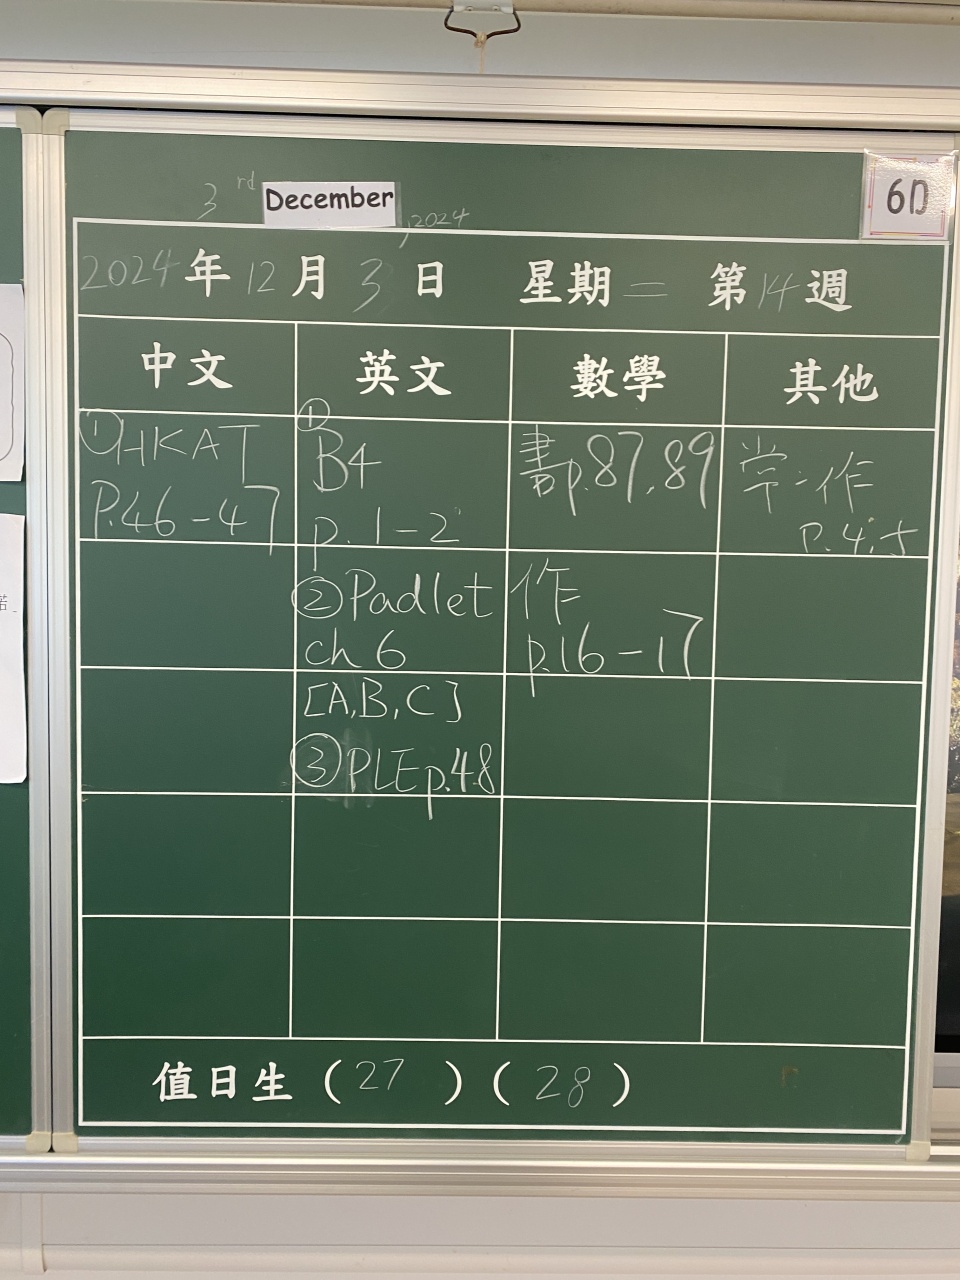 3rd December, 2024
6D
2024年12月3日 星期二 第14週
中文 英文 數學 其他
①HKAT
P.46-47
①
B4
p.1-2
②Padlet
ch 6
[A,B,C]
③PLE p.48
書p.87,89
作
p.16-17
常:作
P.4,5
值日生(27)(28)